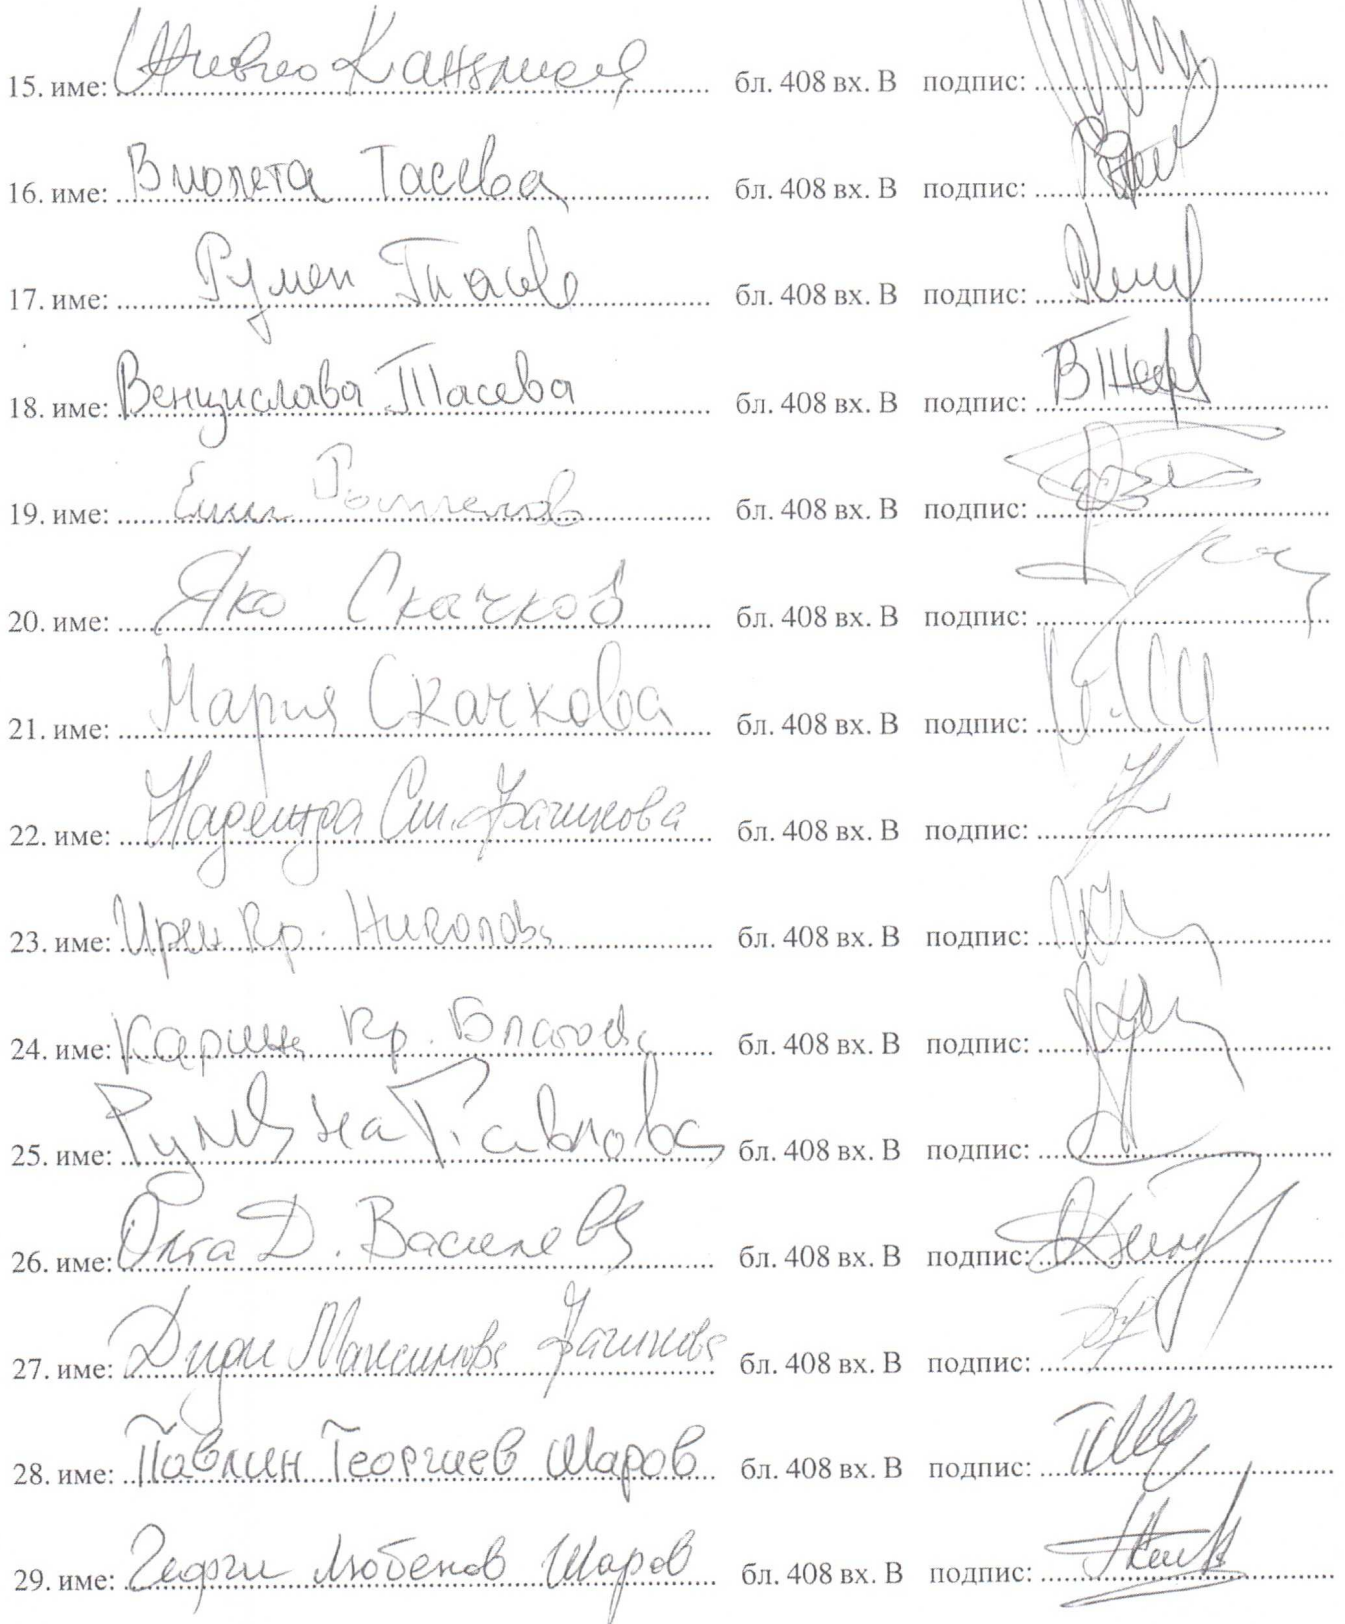 15. име: Живко бл. 408 вх. В подпис:
16. име: Виолета Тасева бл. 408 вх. В подпис:
17. име: Румен Тасев бл. 408 вх. В подпис:
18. име: Венцислава Тасева бл. 408 вх. В подпис:
19. име: бл. 408 вх. В подпис:
20. име: Яко Скачков бл. 408 вх. В подпис:
21. име: Мария Скачкова бл. 408 вх. В подпис:
22. име: Надежда Ст. Фачикова бл. 408 вх. В подпис:
23. име: Ирен Кр. Николова бл. 408 вх. В подпис:
24. име: Карин Кр. бл. 408 вх. В подпис:
25. име: Румяна Павлова бл. 408 вх. В подпис:
26. име: Олга Д. Василева бл. 408 вх. В подпис:
27. име: Диди Максимова Фачикова бл. 408 вх. В подпис:
28. име: Павлин Георгиев Шаров бл. 408 вх. В подпис:
29. име: Георги Любенов Шаров бл. 408 вх. В подпис: